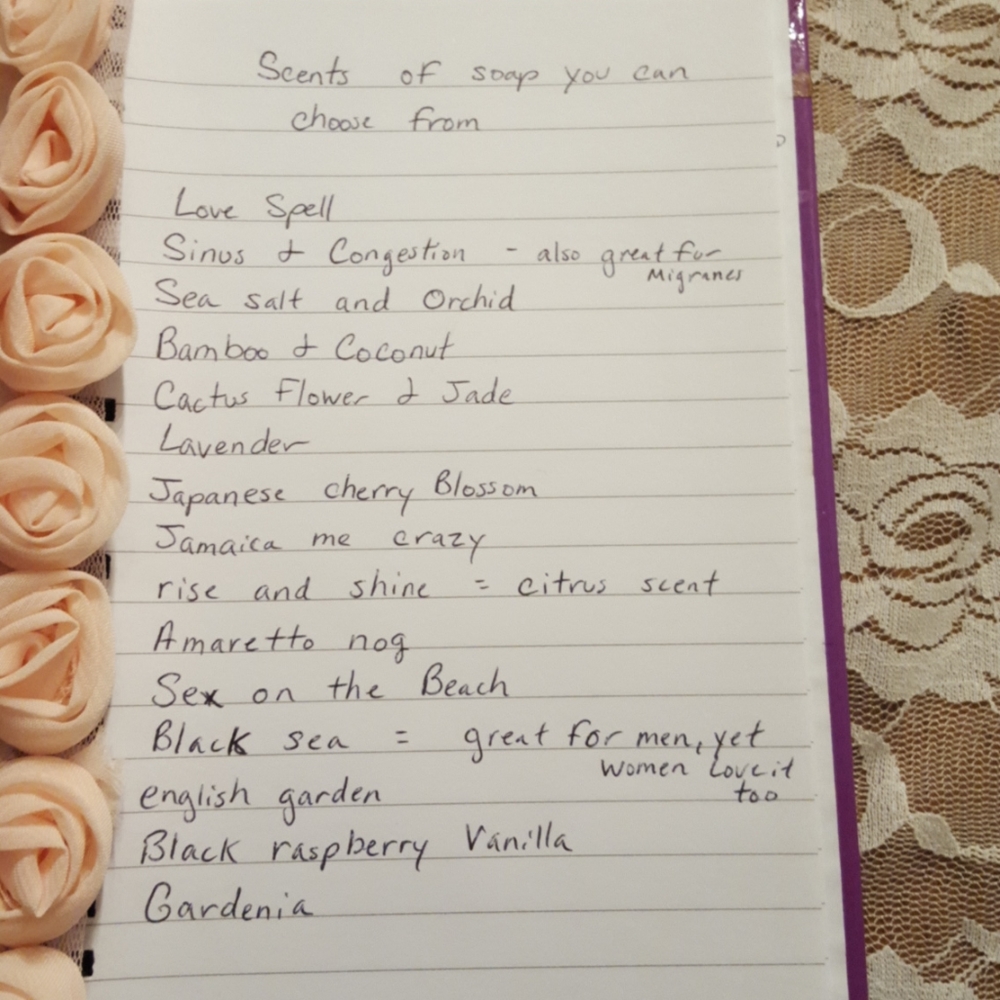 Scents of soap you can
choose from
Love Spell
Sinus & Congestion - also great for
Migranes
Sea salt and Orchid
Bamboo & Coconut
Cactus Flower & Jade
Lavender
Japanese cherry Blossom
Jamaica me crazy
rise and shine = citrus scent
Amaretto nog
Sex on the Beach
Black sea = great for men, yet
women love it
too
english garden
Black raspberry Vanilla
Gardenia